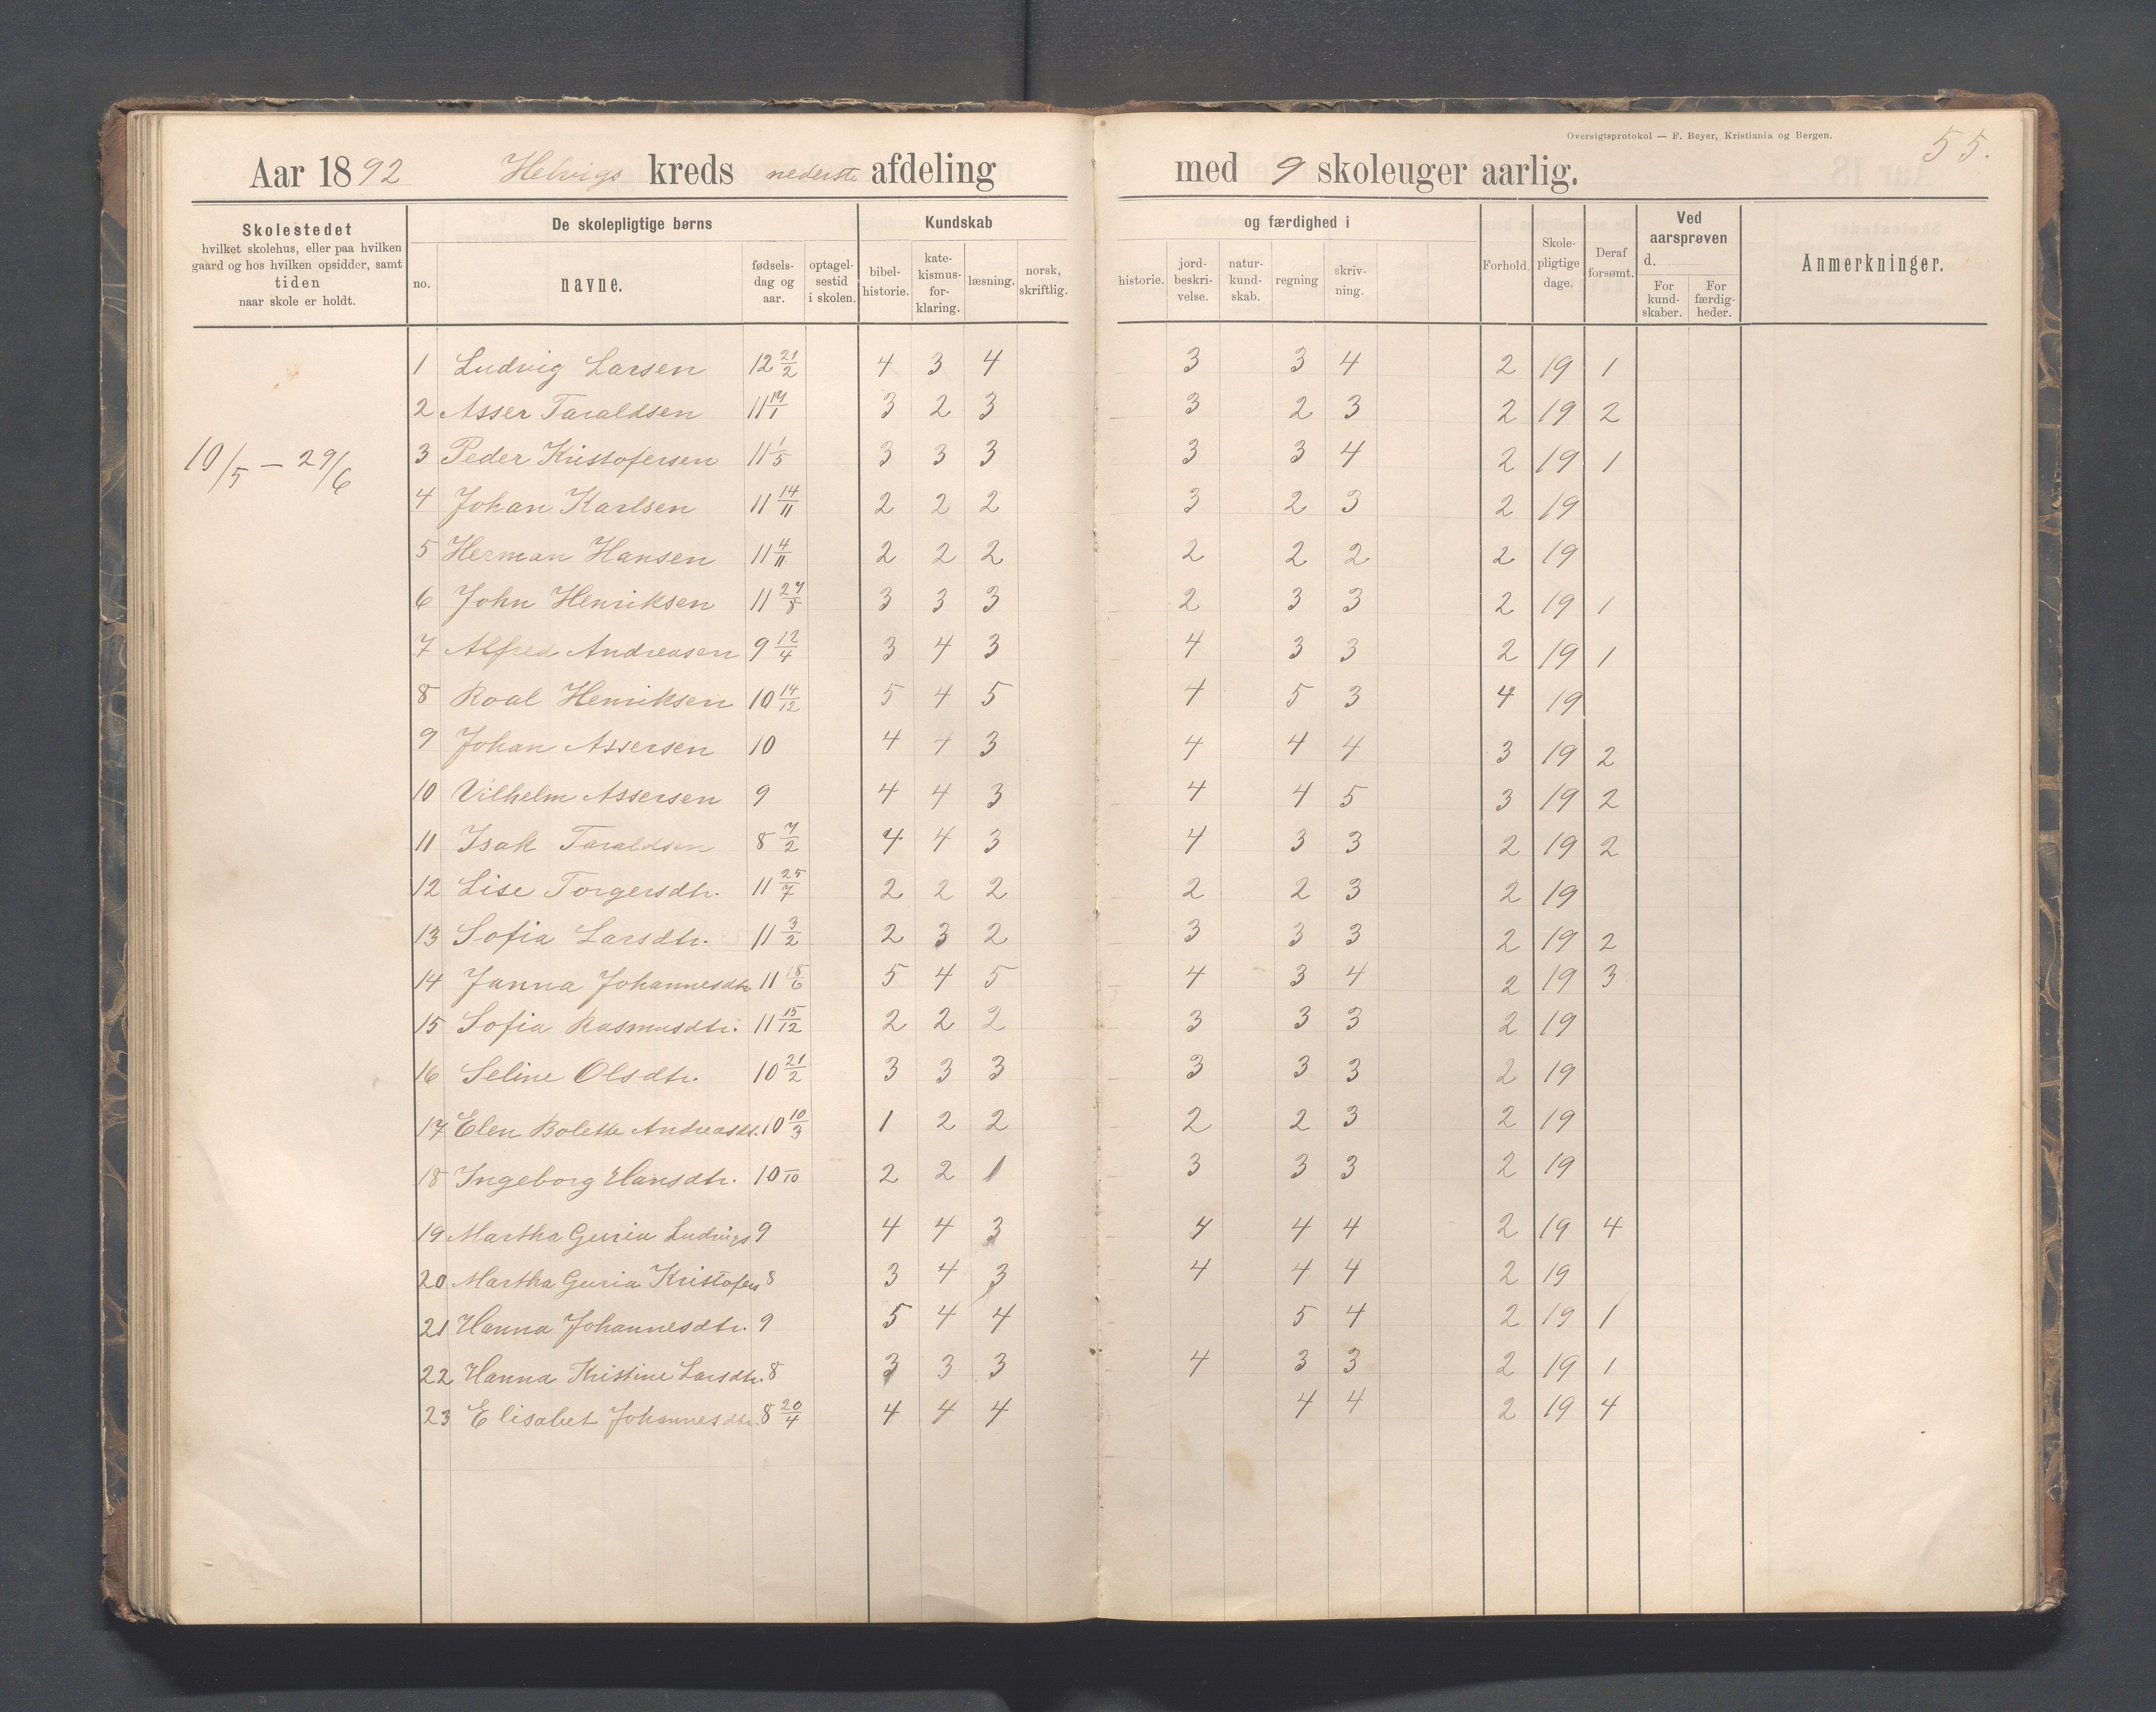 Oversigtsprotokol — F. Beyer, Kristiania og Bergen.
55.
Aar 1892 Helvigs kreds nederste afdeling med 9 skoleuger aarlig.
Skolestedet hvilket skolehus, eller paa hvilken gaard og hos hvilken opsidder, samt tiden naar skole er holdt.
De skolepligtige børns
no. navne. fødselsdag og aar. optagelsestid i skolen.
Kundskab og færdighed i
bibelhistorie. katekismusforklaring. læsning. norsk, skriftlig. historie. jordbeskrivelse. naturkundskab. regning skrivning.
Forhold. Skolepligtige dage. Deraf forsømt.
Ved aarsprøven d.
For kundskaber. For færdigheder.
Anmerkninger.
10/5 – 29/6
1 Ludvig Larsen 12 21/2 4 3 4 3 3 4 2 19 1
2 Asser Taraldsen 11 19/1 3 2 3 3 2 3 2 19 2
3 Peder Kristofersen 11 1/5 3 3 3 3 3 4 2 19 1
4 Johan Karlsen 11 14/11 2 2 2 3 2 3 2 19
5 Herman Hansen 11 4/11 2 2 2 2 2 2 2 19
6 John Henriksen 11 27/8 3 3 3 2 3 3 2 19 1
7 Alfred Andreasen 9 12/4 3 4 3 4 3 3 2 19 1
8 Roal Henriksen 10 14/12 5 4 5 4 5 3 4 19
9 Johan Assersen 10 4 4 3 4 4 4 3 19 2
10 Vilhelm Assersen 9 4 4 3 4 4 5 3 19 2
11 Isak Taraldsen 8 7/2 4 4 3 4 3 3 2 19 2
12 Lise Torgersdtr. 11 25/7 2 2 2 2 2 3 2 19
13 Sofia Larsdtr. 11 3/2 2 3 2 3 3 3 2 19 2
14 Janna Johannesdtr 11 18/6 5 4 5 4 3 4 2 19 3
15 Sofia Rasmusdtr. 11 15/12 2 2 2 3 3 3 2 19
16 Seline Olsdtr. 10 21/2 3 3 3 3 3 3 2 19
17 Elen Bolette Andreasdt. 10 10/3 1 2 2 2 2 3 2 19
18 Ingeborg Hansdtr. 10 /10 2 2 1 3 3 3 2 19
19 Martha Guria Ludvigs 9 4 4 3 4 4 4 2 19 4
20 Martha Guria Kristofers 8 3 4 3 4 4 4 2 19
21 Hanna Johannesdtr. 9 5 4 4 5 4 2 19 1
22 Hanna Kristine Larsdtr. 8 3 3 3 4 3 3 2 19 1
23 Elisabet Johannesdtr. 8 20/4 4 4 4 4 4 2 19 4